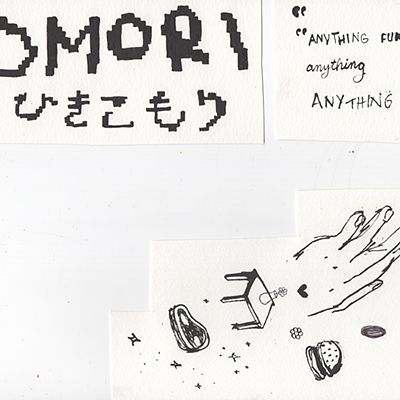 OMORI
ひきこもり
“ANYTHING
anything
ANYTHING